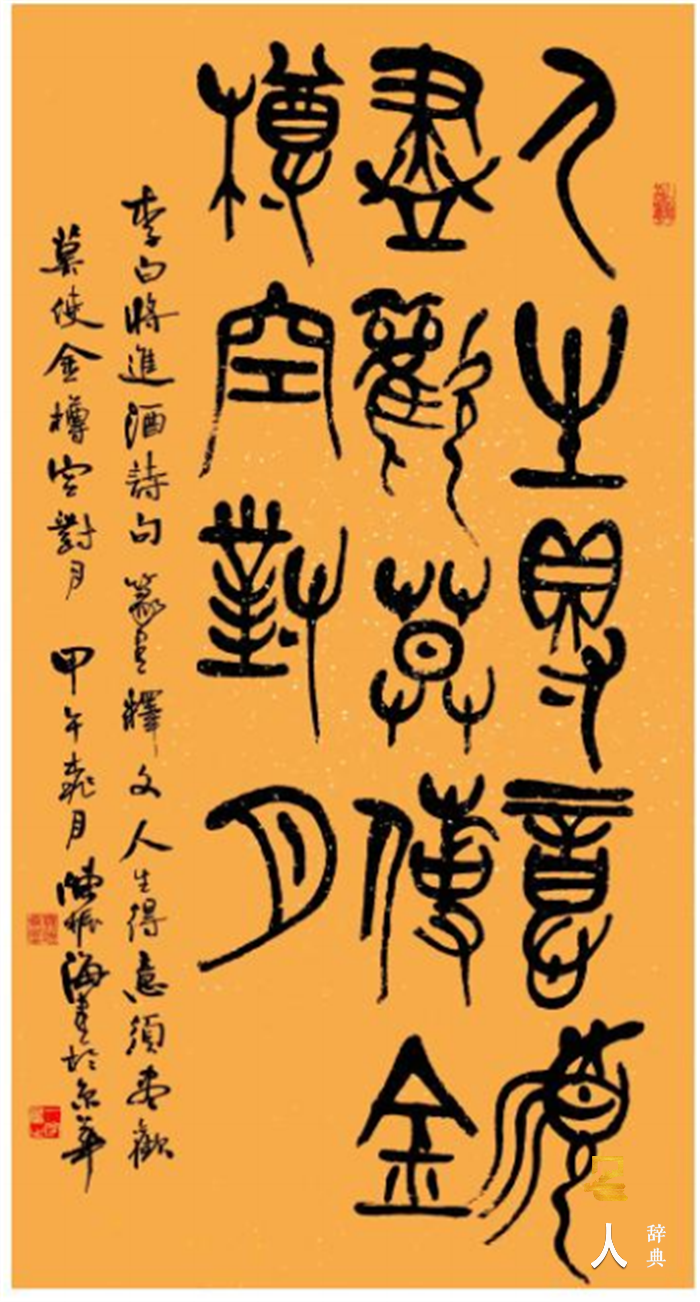 人生得意須
盡歡莫使金
樽空對月
李白將進酒詩句 篆書釋文 人生得意須盡歡
莫使金樽空對月 甲午桃月 陳振海書於京華
名人辞典